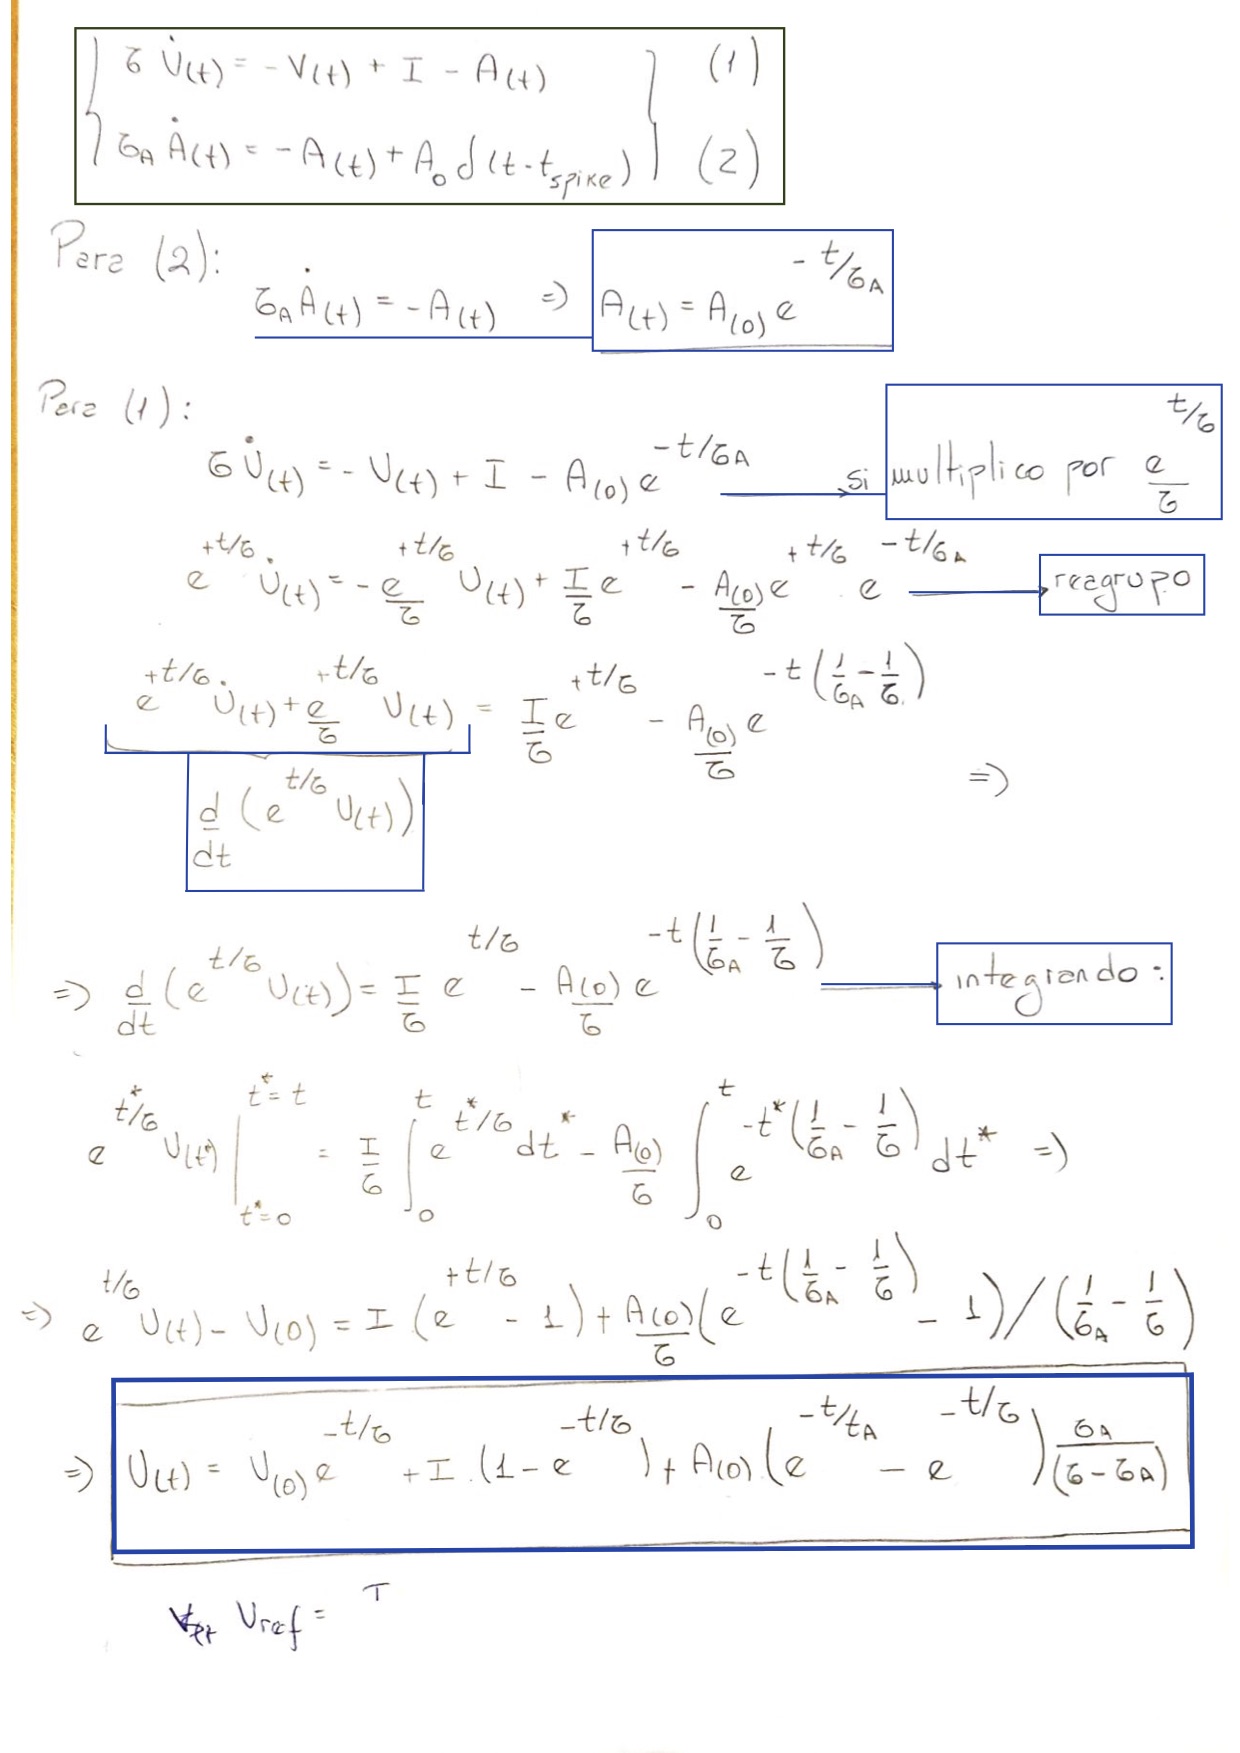 τ V̇(t) = - V(t) + I - A(t) (1)
τ_A Ȧ(t) = - A(t) + A_0 δ(t - t_spike) (2)
Para (2):
τ_A Ȧ(t) = - A(t) => A(t) = A(0) e^{-t/τ_A}
Para (1):
τ V̇(t) = - V(t) + I - A(0) e^{-t/τ_A} si multiplico por e^{t/τ}/τ
e^{+t/τ} · V̇(t) = - e^{+t/τ}/τ V(t) + I/τ e^{+t/τ} - A(0)/τ e^{+t/τ} · e^{-t/τ_A} reagrupo
e^{+t/τ} · V̇(t) + e^{+t/τ}/τ V(t) = I/τ e^{+t/τ} - A(0)/τ e^{-t(1/τ_A - 1/τ)}
d/dt (e^{t/τ} V(t)) =>
=> d/dt (e^{t/τ} V(t)) = I/τ e^{t/τ} - A(0)/τ e^{-t(1/τ_A - 1/τ)} integrando:
e^{t*/τ} V(t*) |_{t*=0}^{t*=t} = I/τ ∫_0^t e^{t*/τ} dt* - A(0)/τ ∫_0^t e^{-t*(1/τ_A - 1/τ)} dt* =>
=> e^{t/τ} V(t) - V(0) = I (e^{+t/τ} - 1) + A(0)/τ (e^{-t(1/τ_A - 1/τ)} - 1) / (1/τ_A - 1/τ)
=> V(t) = V(0) e^{-t/τ} + I · (1 - e^{-t/τ}) + A(0) · (e^{-t/t_A} - e^{-t/τ}) τ_A/(τ - τ_A)
V_ref =